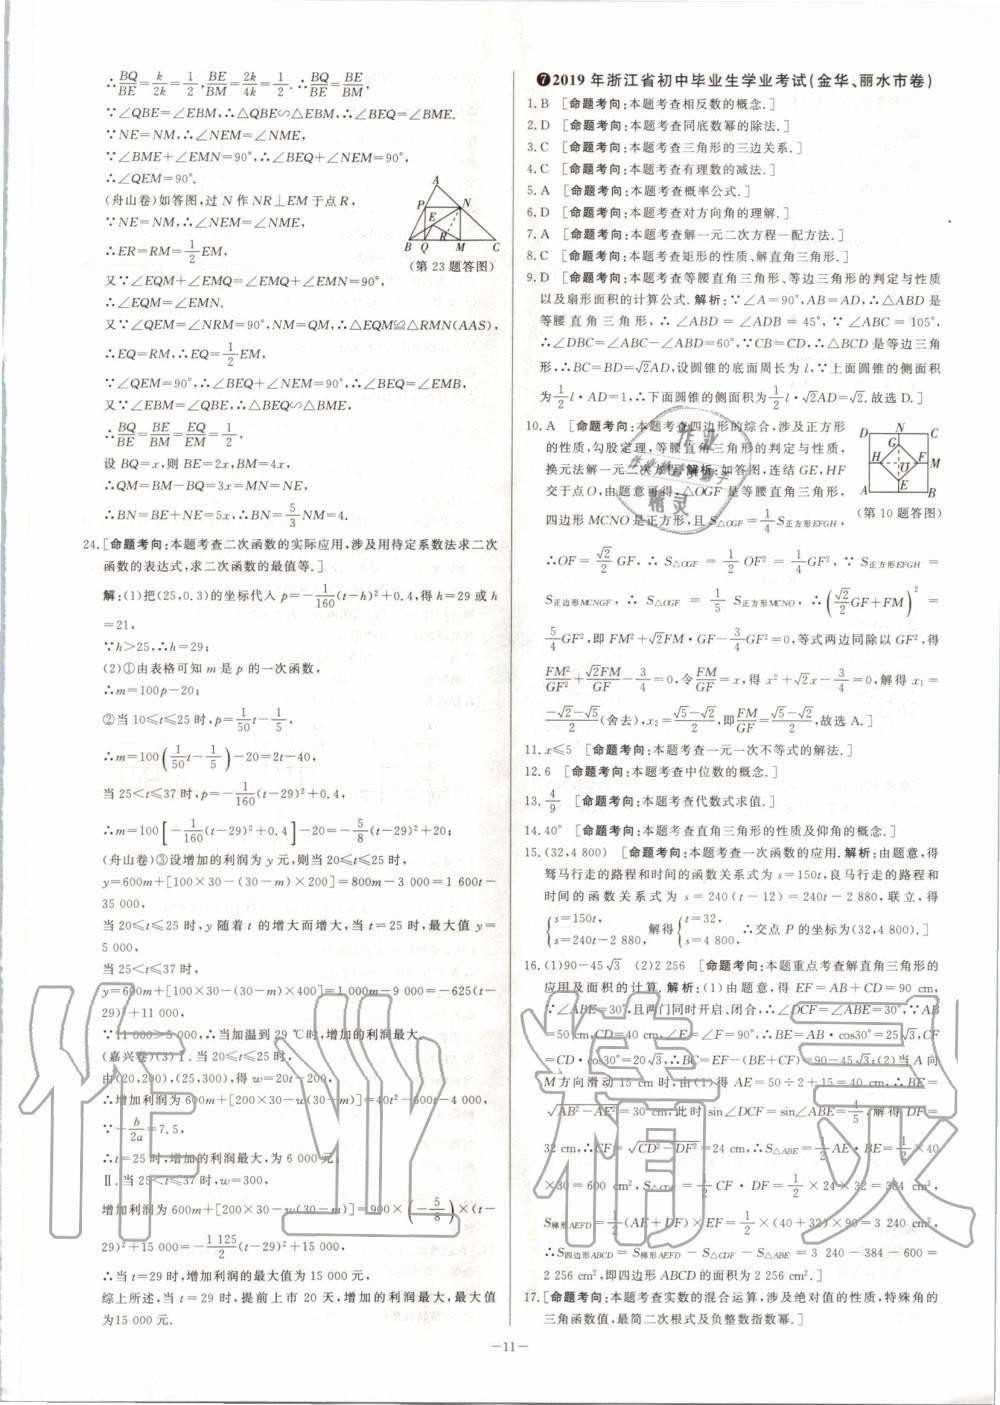 ∴BQ/BE=k/2k=1/2,BE/BM=2k/4k=1/2.∴BQ/BE=BE/BM,
∵∠QBE=∠EBM,∴△QBE∽△EBM,∴∠BEQ=∠BME.
∵NE=NM,∴∠NEM=∠NME,
∵∠BME+∠EMN=90°,∴∠BEQ+∠NEM=90°,
∴∠QEM=90°.
(舟山卷)如答图,过 N 作 NR⊥EM 于点 R,
∵NE=NM,∴∠NEM=∠NME,
∴ER=RM=1/2EM,
又∵∠EQM+∠EMQ=∠EMQ+∠EMN,
∴∠EQM=∠EMN.
A
P
N
E
R
B
Q
M
C
(第 23 题答图)
又∵∠QEM=∠NRM=90°,NM=QM,∴△EQM≌△RMN(AAS),
∴EQ=RM,∴EQ=1/2EM,
∵∠QEM=90°,∴∠BEQ+∠NEM=90°,∴∠BEQ=∠EMB,
又∵∠EBM=∠QBE,∴△BEQ∽△BME,
∴BQ/BE=BE/BM=EQ/EM=1/2,
设 BQ=x,则 BE=2x,BM=4x,
∴QM=BM-BQ=3x=MN=NE,
∴BN=BE+NE=5x,∴BN=5/3NM=4.
24.[命题考向:本题考查二次函数的实际应用,涉及用待定系数法求二次
函数的表达式,求二次函数的最值等.]
解:(1)把(25,0.3)的坐标代入 p=-1/160(t-h)²+0.4,得 h=29 或 h
=21,
∵h>25,∴h=29.
(2)①由表格可知 m 是 p 的一次函数,
∴m=100p-20;
②当 10≤t≤25 时,p=1/50t-1/5,
∴m=100(1/50t-1/5)-20=2t-40,
当 25<t≤37 时,p=-1/160(t-29)²+0.4,
∴m=100[-1/160(t-29)²+0.4]-20=-5/8(t-29)²+20.
(舟山卷)③设增加的利润为 y 元,则当 20≤t≤25 时,
y=600m+[100×30-(30-m)×200]=800m-3 000=1 600t-
35 000,
当 20≤t≤25 时,y 随着 t 的增大而增大,当 t=25 时,最大值 y=
5 000,
当 25<t≤37 时,
y=600m+[100×30-(30-m)×400]=1000m-9 000=-625(t-
29)²+11 000,
∵11 000>5 000,∴当加温到 29 ℃时,增加的利润最大.
(嘉兴卷)(3)Ⅰ.当 20≤t≤25 时,
由(20,200),(25,300),得 w=20t-200,
∴增加利润为 600m+[200×30-w(30-m)]=40t²-600t-4 000,
∵-b/2a=7.5,
∴t=25 时,增加的利润最大,为 6 000 元.
Ⅱ.当 25<t≤37 时,w=300,
增加利润为600m+[200×30-w(30-m)]=900×(-5/8)×(t-
29)²+15 000=-1 125/2(t-29)²+15 000,
∴当 t=29 时,增加利润的最大值为 15 000 元.
综上所述,当 t=29 时,提前上市 20 天,增加的利润最大,最大值
为15 000 元.
❼2019 年浙江省初中毕业生学业考试(金华、丽水市卷)
1.B [命题考向:本题考查相反数的概念.]
2.D [命题考向:本题考查同底数幂的除法.]
3.C [命题考向:本题考查三角形的三边关系.]
4.C [命题考向:本题考查有理数的减法.]
5.A [命题考向:本题考查概率公式.]
6.D [命题考向:本题考查对方向角的理解.]
7.A [命题考向:本题考查解一元二次方程—配方法.]
8.C [命题考向:本题考查矩形的性质、解直角三角形.]
9.D [命题考向:本题考查等腰直角三角形、等边三角形的判定与性质
以及扇形面积的计算公式.解析:∵∠A=90°,AB=AD,∴△ABD 是
等腰直角三角形,∴∠ABD=∠ADB=45°,∵∠ABC=105°,
∴∠DBC=∠ABC-∠ABD=60°,∵CB=CD,∴△BCD 是等边三角
形,∴BC=BD=√2AD,设圆锥的底面周长为 l,∵上面圆锥的侧面积
为1/2l·AD=1,∴下面圆锥的侧面积为1/2l·√2AD=√2.故选 D.]
10.A [命题考向:本题考查四边形的综合,涉及正方形
的性质,勾股定理,等腰直角三角形的判定与性质,
换元法解一元二次方程.解析:如答图,连结 GE,HF
交于点 O,由题意可得,△OGF 是等腰直角三角形,
四边形 MCNO 是正方形,且 S△OGF=1/4S正方形EFGH,
D
N
C
G
H
F
M
E
A
B
(第 10 题答图)
∴OF=√2/2GF,∴S△OGF=1/2OF²=1/4GF²,∵S正方形EFGH=
S正边形MCNGF,∴S△OGF=1/5S正方形MCNO,∴(√2/2GF+FM)²=
5/4GF²,即 FM²+√2FM·GF-3/4GF²=0,等式两边同除以 GF²,得
FM²/GF²+√2FM/GF-3/4=0,令FM/GF=x,得 x²+√2x-3/4=0,解得 x₁=
-√2-√5/2(舍去),x₂=√5-√2/2,即FM/GF=√5-√2/2,故选 A.]
11.x≤5 [命题考向:本题考查一元一次不等式的解法.]
12.6 [命题考向:本题考查中位数的概念.]
13.4/9 [命题考向:本题考查代数式求值.]
14.40° [命题考向:本题考查直角三角形的性质及仰角的概念.]
15.(32,4 800) [命题考向:本题考查一次函数的应用.解析:由题意,得
驽马行走的路程和时间的函数关系式为 s=150t,良马行走的路程和
时间的函数关系式为 s=240(t-12)=240t-2 880,联立,得
{s=150t, s=240t-2 880, 解得{t=32, s=4 800, ∴交点 P 的坐标为(32,4 800).]
16.(1)90-45√3 (2)2 256 [命题考向:本题重点考查解直角三角形的
应用及面积的计算.解析:(1)由题意,得 EF=AB+CD=90 cm,
∵∠ABE=30°,且两门同时开启、闭合,∴∠DCF=∠ABE=30°,∵AB
=50 cm,CD=40 cm,∠E=∠F=90°,∴BE=AB·cos30°=25√3,CF
=CD·cos30°=20√3,∴BC=EF-(BE+CF)=90-45√3;(2)当 A 向
M 方向滑动 15 cm 时,由(1),得 AE=50÷2+15=40 cm,∴BE=
√AB²-AE²=30 cm,此时 sin∠DCF=sin∠ABE=4/5,解得 DF=
32 cm,∴CF=√CD²-DF²=24 cm,∴S△ABE=1/2AE·BE=1/2×40
×30=600 cm²,S△CDF=1/2CF·DF=1/2×24×32=384 cm²,
S梯形AEFD=1/2(AE+DF)×EF=1/2×(40+32)×90=3 240 cm²,
∴S四边形ABCD=S梯形AEFD-S△CDF-S△ABE=3 240-384-600=
2 256 cm²,即四边形 ABCD 的面积为 2 256 cm².]
17.[命题考向:本题考查实数的混合运算,涉及绝对值的性质,特殊角的
三角函数值,最简二次根式及负整数指数幂.]
—11—
作业精灵